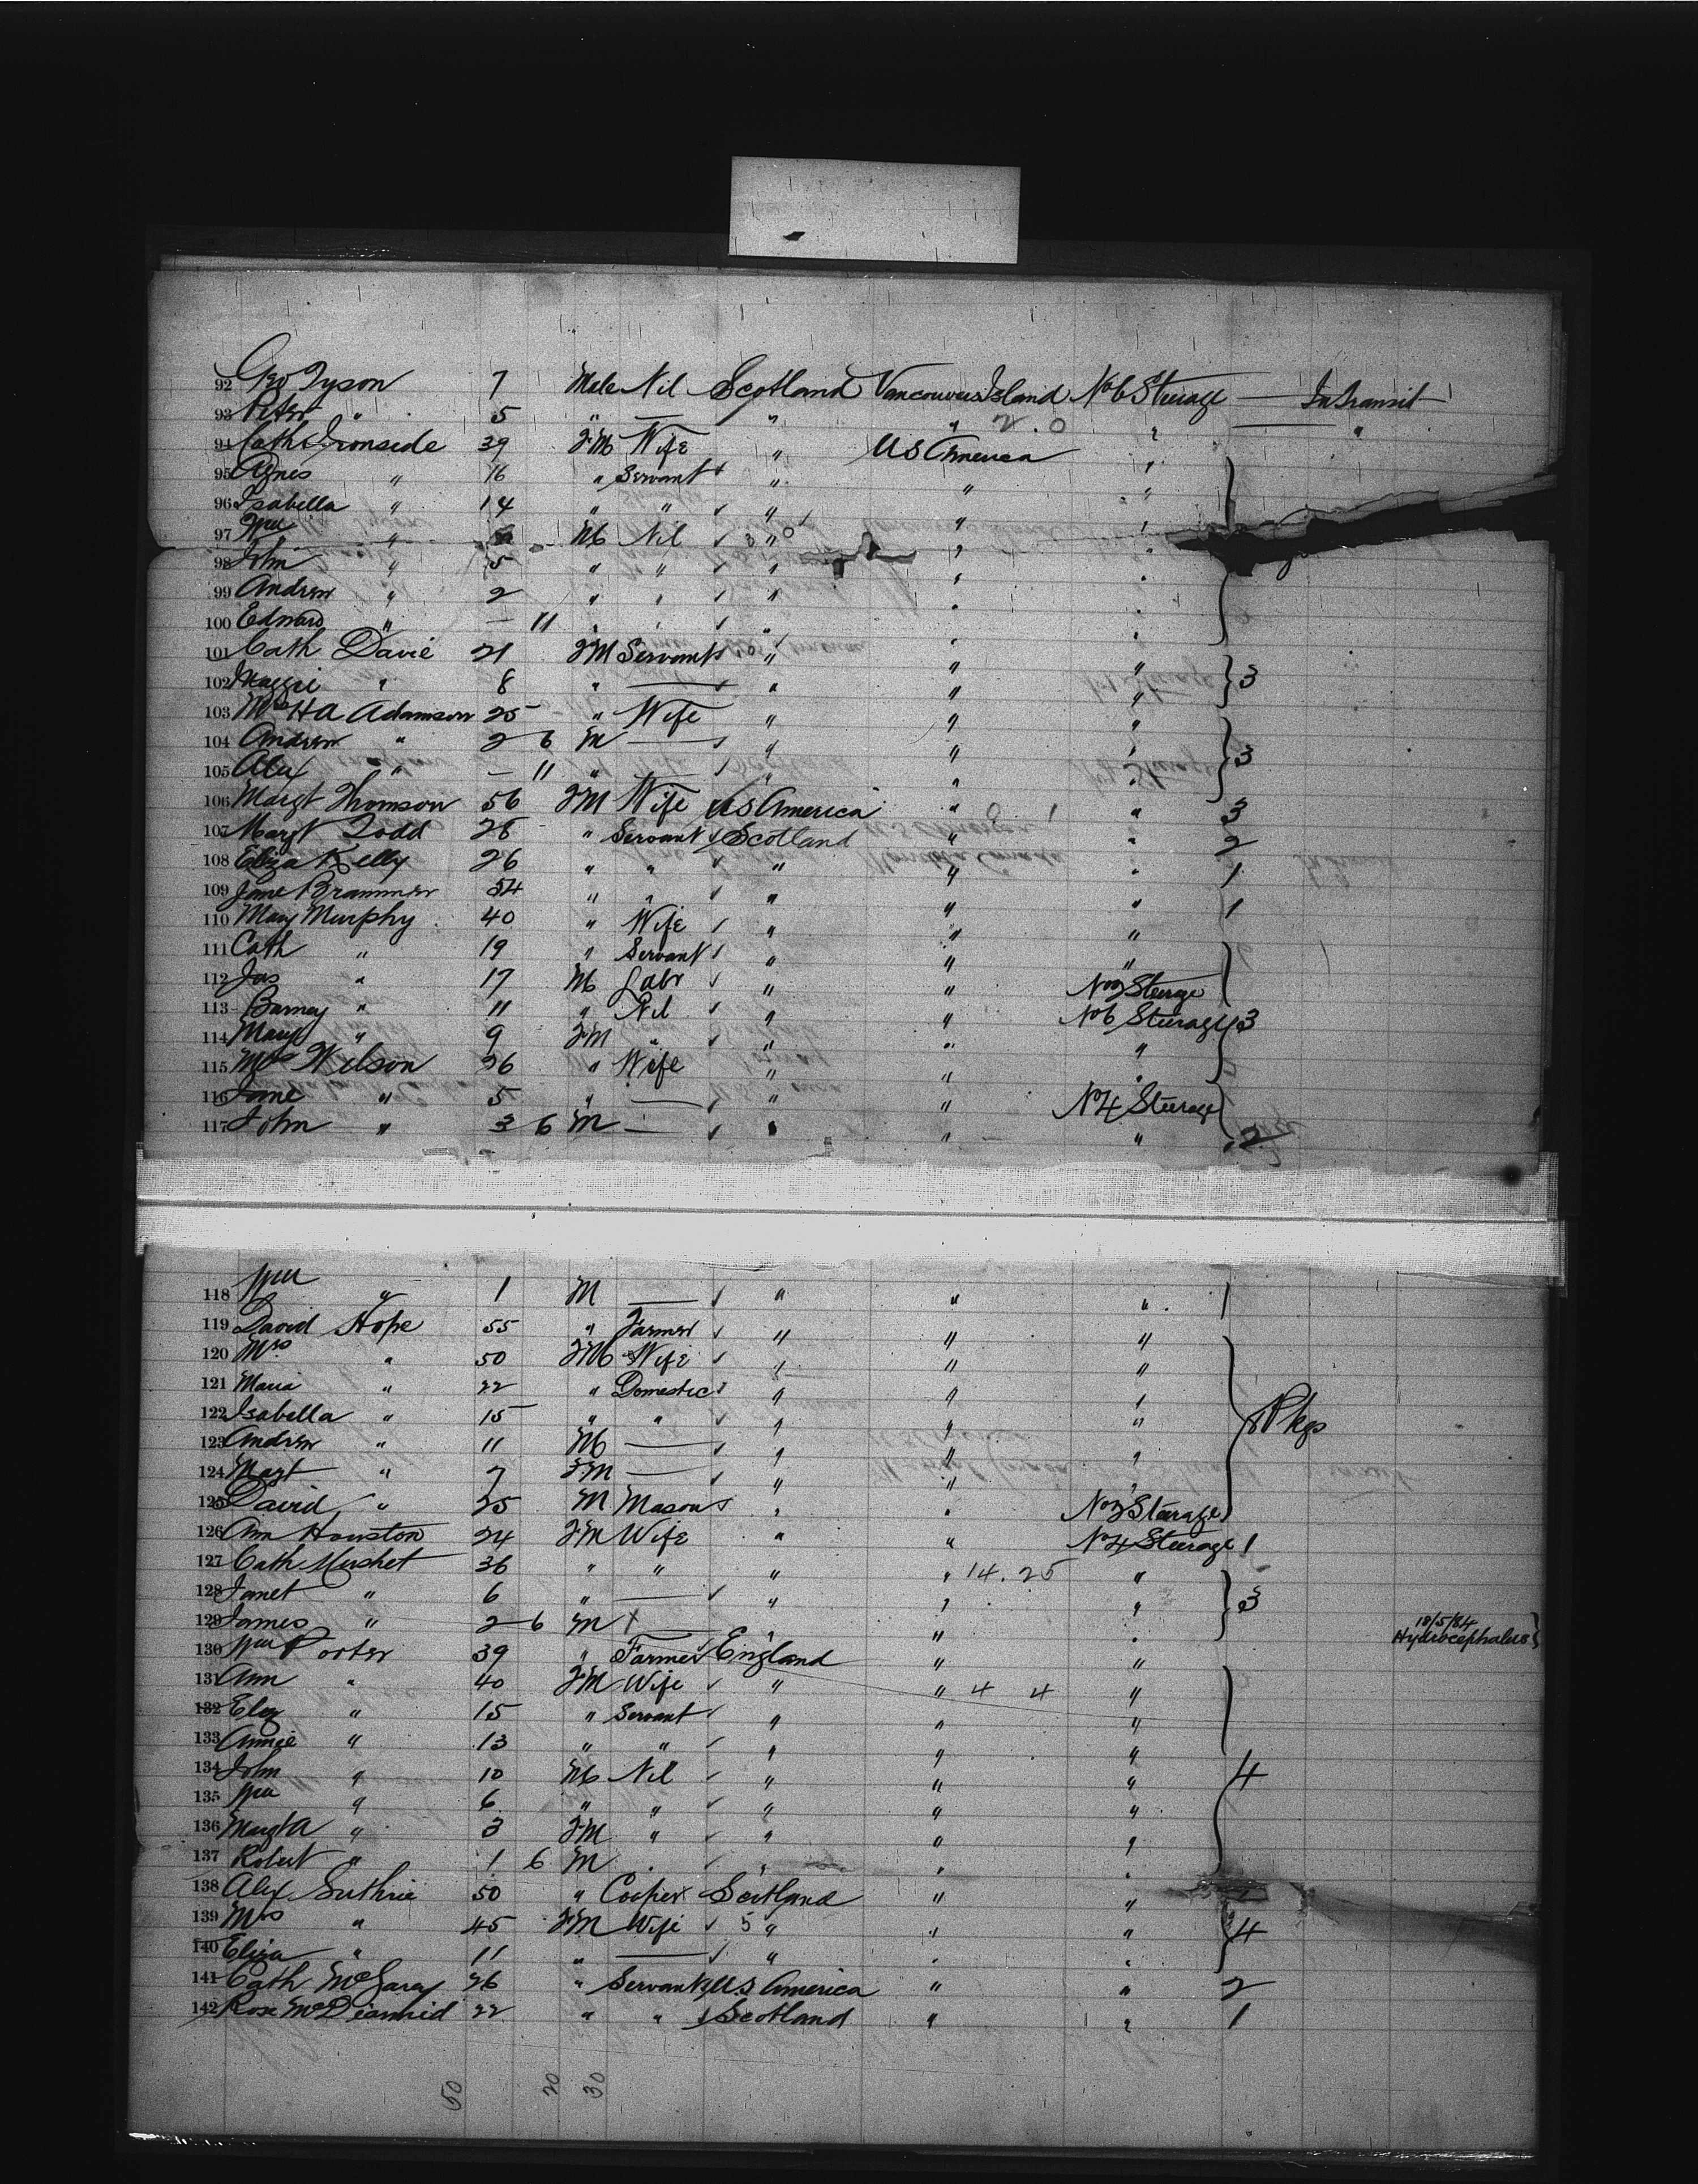 92 Geo Tyson 7 Male Nil Scotland Vancouvers Island No 6 Steerage — In Transit
93 Peter " 5 " — " " 2.0 " — "
94 Cath Ironside 39 FM Wife " US America "
95 Agnes " 16 " Servant " " "
96 Isabella " 14 " " " " "
97 Wm " M Nil " 3 0 " "
98 John " 5 " " " " "
99 Andrew " 2 " " " " "
100 Edward " — 11 " " " " "
101 Cath Davie 21 FM Servant " " "
102 Maggie " 8 " — " " " } 3
103 Mrs H A Adamson 25 " Wife " " "
104 Andrew " 2 6 M — " " " } 3
105 Alex " — 11 " — " " "
106 Margt Thomson 56 FM Wife US America " " 3
107 Margt Todd 28 " Servant Scotland " " 2
108 Eliza Kelly 26 " " " " " 1
109 Jane Brammer 54 " " " " " 1
110 Mary Murphy 40 " Wife " " "
111 Cath " 19 " Servant " " "
112 Jas " 17 M Labr " " No 3 Steerage
113 Barney " 11 " Nil " " No 6 Steerage } 3
114 Mary " 9 FM " " " "
115 Mrs Wilson 26 " Wife " " "
116 Jane " 5 " — " " No 4 Steerage
117 John " 3 6 M — " " " 2
118 Wm " 1 M — " " "
119 David Hope 55 " Farmer " " "
120 Mrs " 50 FM Wife " " "
121 Maria " 22 " Domestic " " "
122 Isabella " 15 " " " " " } 8 Pkgs
123 Andrew " 11 M — " " "
124 Margt " 7 FM — " " "
125 David " 25 M Mason " " No 3 Steerage
126 Ann Houston 24 FM Wife " " No 4 Steerage 1
127 Cath Mushet 36 " " " " 14.25 "
128 Janet " 6 " — " " " } 3
129 James " 2 6 M X — " " " 18/5/84 Hydrocephalus }
130 Wm Porter 39 " Farmer England " "
131 Ann " 40 FM Wife " " 4 4 "
132 Eliz " 15 " Servant " " "
133 Annie " 13 " " " " "
134 John " 10 M Nil " " " 4
135 Wm " 6 " " " " "
136 Margt A " 3 FM " " " "
137 Robert " 1 6 M " " " "
138 Alex Guthrie 50 " Cooper Scotland " "
139 Mrs " 45 FM Wife 5 " " " } 4
140 Eliza " 11 " — " " "
141 Cath McGarey 26 " Servant US America " " 2
142 Rose McDiarmid 22 " " Scotland " " 1
50 20 30